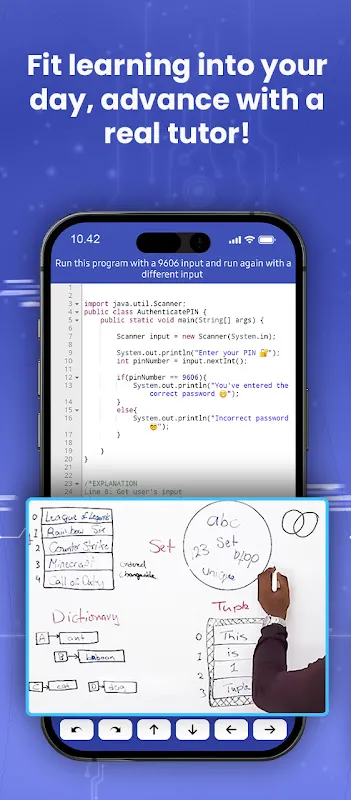 Fit learning into your
day, advance with a
real tutor!
10.42
Run this program with a 9606 input and run again with a
different input
1
2
3 import java.util.Scanner;
4 public class AuthenticatePIN {
5 public static void main(String[] args) {
6
7 Scanner input = new Scanner(System.in);
8
9 System.out.println("Enter your PIN 🔐");
10 int pinNumber = input.nextInt();
11
12 if(pinNumber == 9606){
13 System.out.println("You've entered the
correct password 😊");
14 }
15 else{
16 System.out.println("Incorrect password
🤔");
17 }
18
19 }
20 }
21
22
23 /*EXPLANATION
24 Line 8: Get user's input
0 League of Legends
1 Rainbow Six
2 Counter Strike
3 Minecraft
4 Call of Duty
Set
Ordered
Changeable
abc
123 Set
unique
Dictionary
A ant
B baboon
C cat D dog
Tuple
0 This
1 is
2 1
3 Tuple